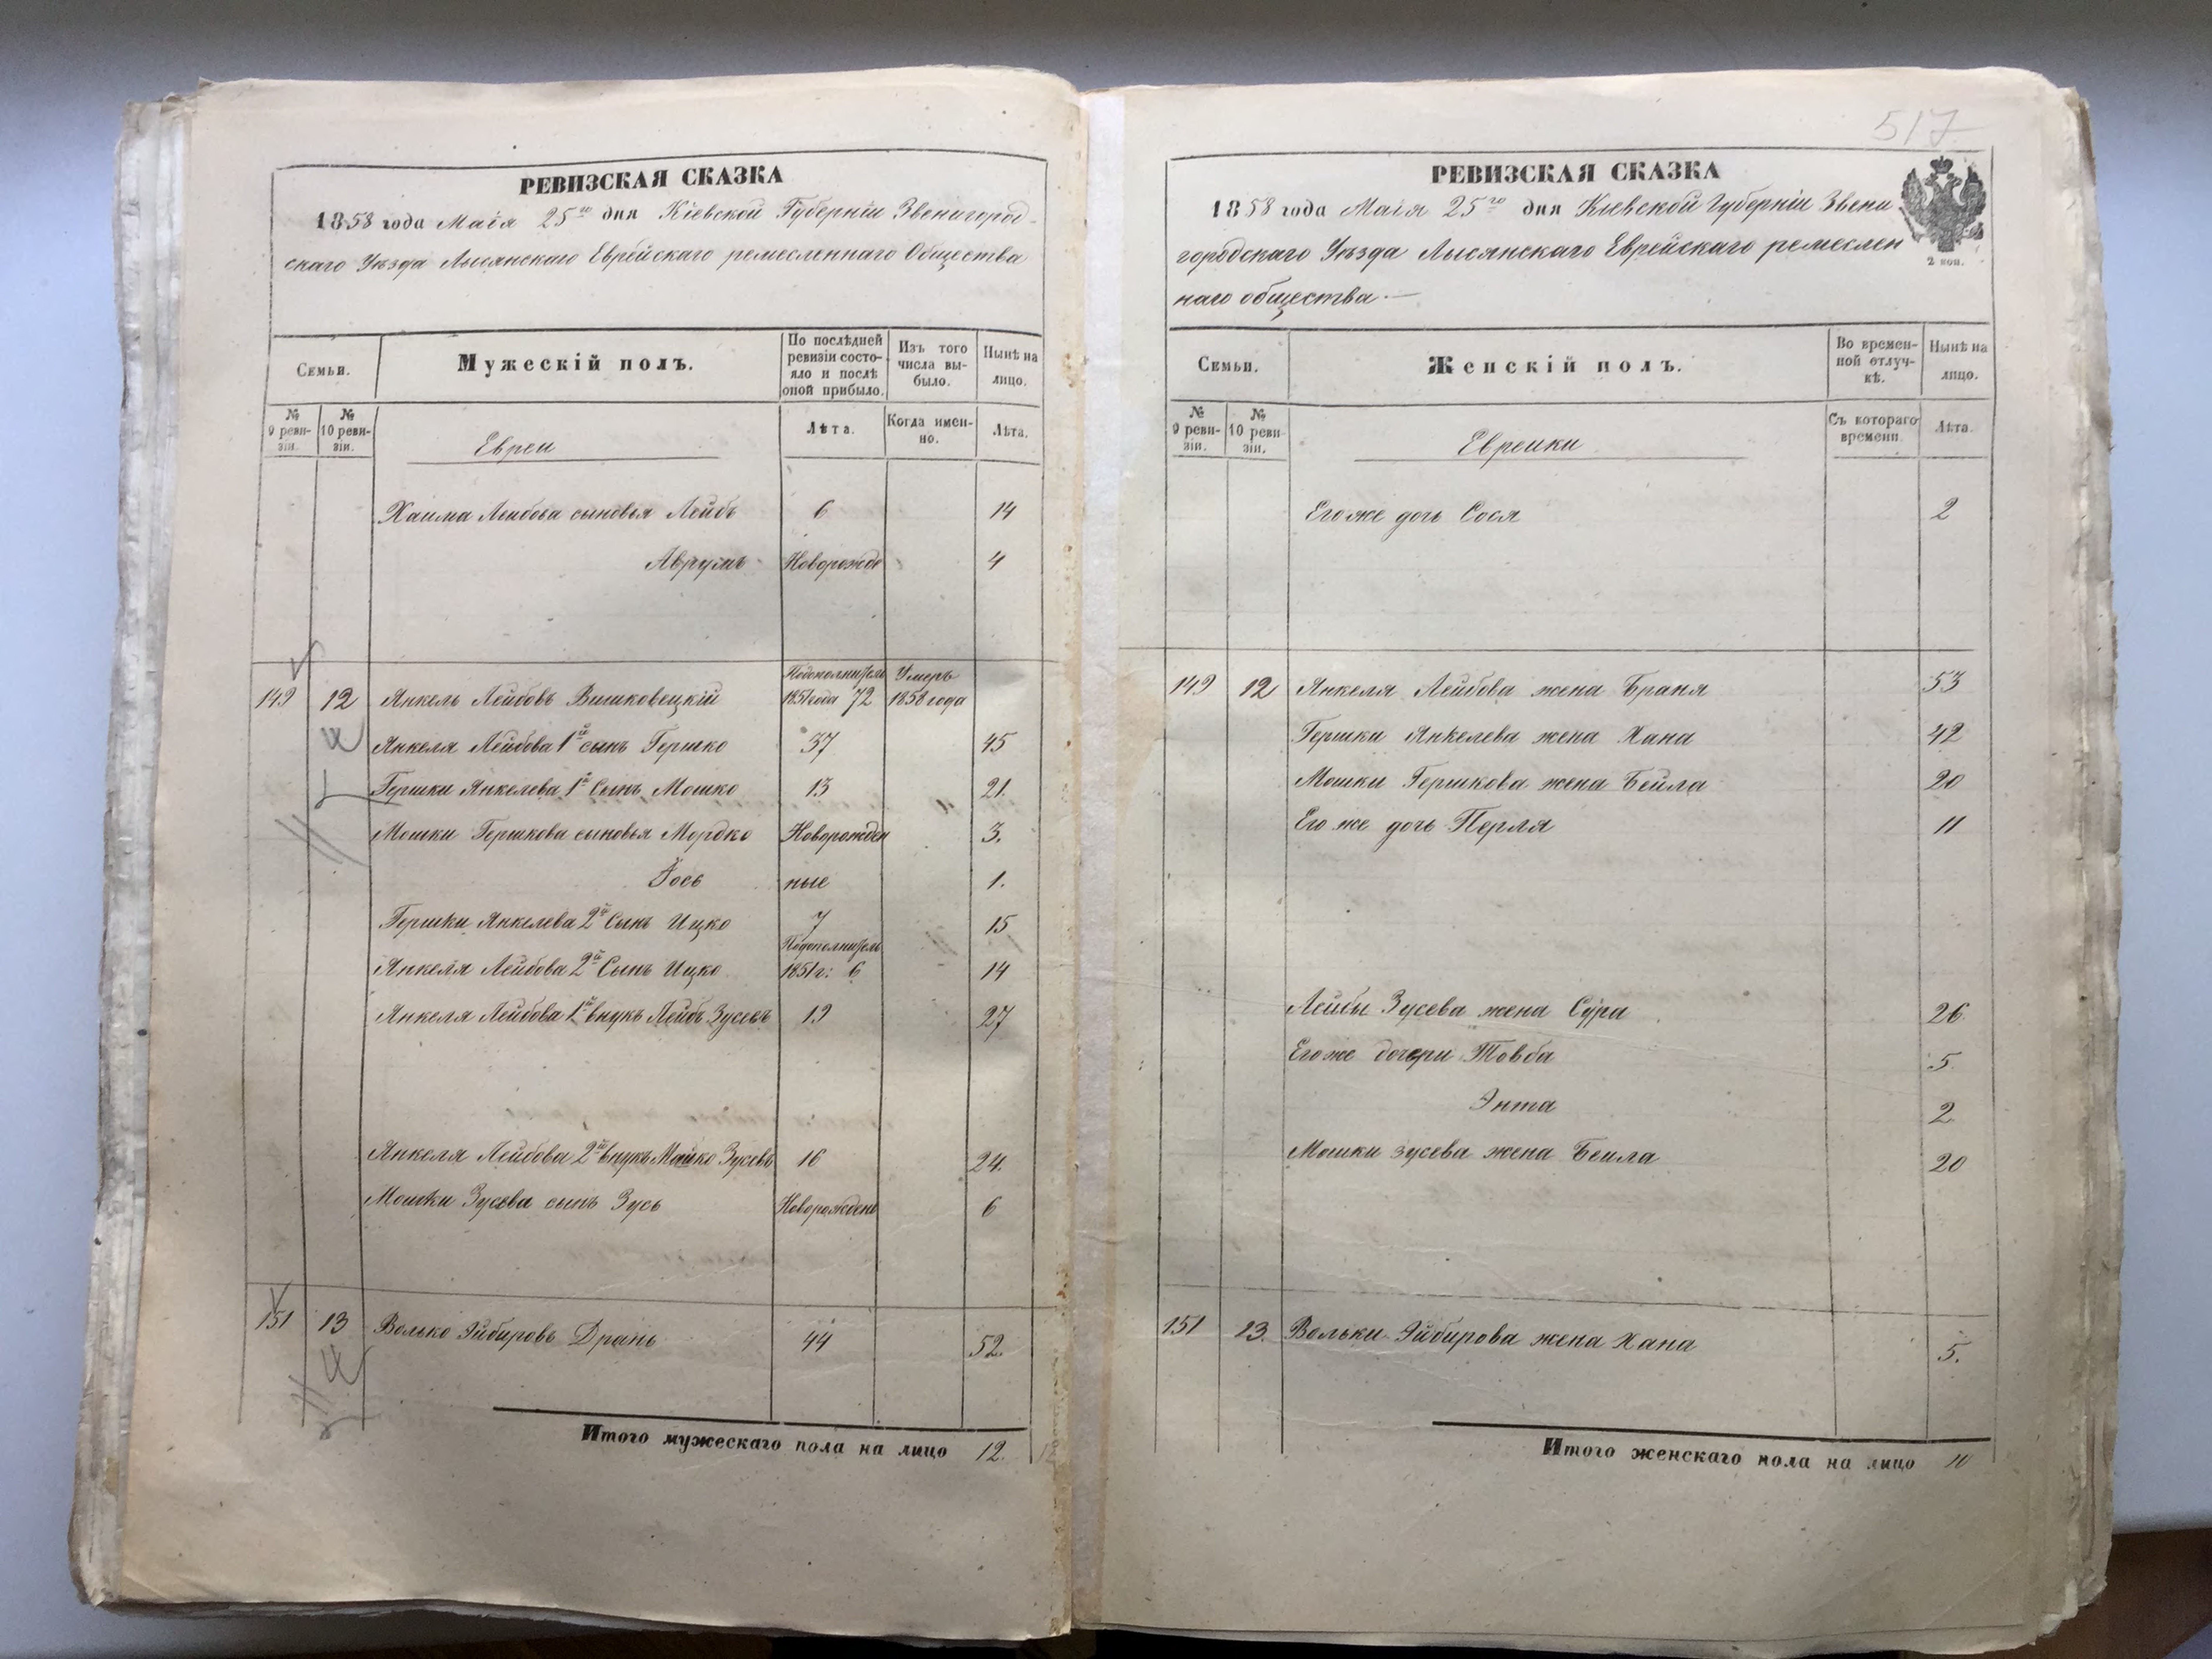 РЕВИЗСКАЯ СКАЗКА
1858 года Маія 25го дня Кіевской Губерніи Звенигород-
скаго Уѣзда Лысянскаго Еврейскаго ремесленнаго Общества
Семьи.
Мужескій полъ.
По послѣдней ревизіи состояло и послѣ оной прибыло.
Изъ того числа выбыло.
Нынѣ на лицо.
№ 9 ревизіи.
№ 10 ревизіи.
Евреи
Лѣта.
Когда именно.
Лѣта.
Хаима Лейбова сыновья Лейбъ 6 14
Аврумъ Новорожде 4
149 12 Янкель Лейбовъ Вишковецкій 1851 года 72 Умеръ 1858 года
Янкеля Лейбова 1й сынъ Гершко 37 45
Гершки Янкелева 1й Сынъ Мошко 13 21.
Мошки Гершкова сыновья Мордко Новорожден 3.
Іось ные 1.
Гершки Янкелева 2й Сынъ Ицко 7 15
Янкеля Лейбова 2й Сынъ Ицко 1851 г: 6 14
Янкеля Лейбова 1й внукъ Лейбъ Зусевъ 19 27
Янкеля Лейбова 2й внукъ Мошко Зусевъ 16 24.
Мошки Зусева сынъ Зусь Новорожден 6
151 13 Волько Эйбировъ Дрань 44 52.
Итого мужескаго пола на лицо 12.
517
РЕВИЗСКАЯ СКАЗКА
1858 года Маія 25го дня Кіевской Губерніи Звени
городскаго Уѣзда Лысянскаго Еврейскаго ремеслен
наго общества.—
2 коп.
Семьи.
Женскій полъ.
Во временной отлучкѣ.
Нынѣ на лицо.
№ 9 ревизіи.
№ 10 ревизіи.
Еврейки
Съ котораго времени.
Лѣта.
Его же дочь Сося 2
149 12 Янкеля Лейбова жена Браня 53
Гершки Янкелева жена Хана 42
Мошки Гершкова жена Бейла 20
Его же дочь Перля 11
Лейбы Зусева жена Сура 26.
Его же дочери Товба 5.
Энта 2.
Мошки зусева жена Беила 20
151 13. Вольки Эйбирова жена Хана 5.
Итого женскаго пола на лицо 10